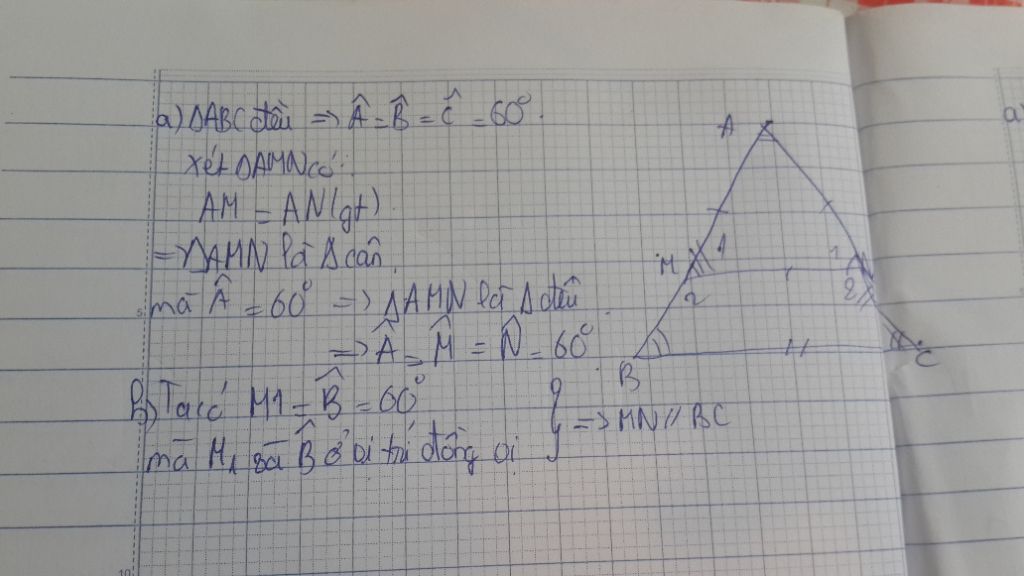 a) ΔABC đều => Â = B̂ = Ĉ = 60°.
xét ΔAMN có:
AM = AN (gt).
=> ΔAMN là Δ cân.
mà Â = 60° => ΔAMN là Δ đều.
=> Â = M̂ = N̂ = 60°
b) Ta có M1 = B̂ = 60°
mà M1 và B̂ ở vị trí đồng vị } => MN // BC
A
M 1 1
2 2
B C
a)
5
10